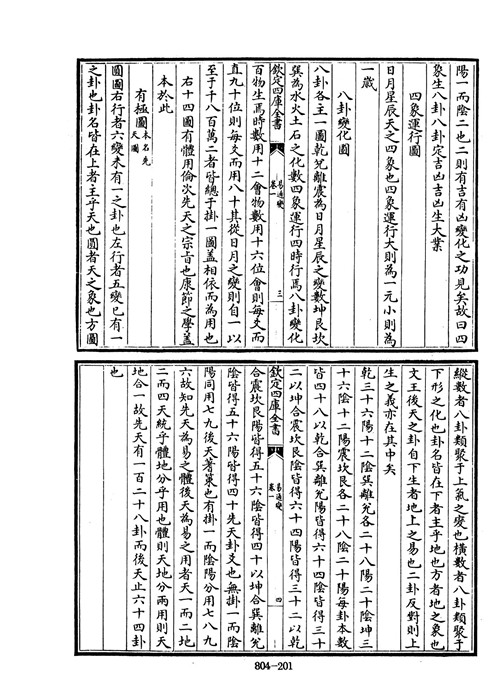 陽一而陰二也二則有吉有凶變化之功見矣故曰四
象生八卦八卦定吉凶吉凶生大業
四象運行圖
日月星辰天之四象也四象運行大則為一元小則為
一歲
八卦變化圖
八卦各主一圖乾兌離震為日月星辰之變數坤艮坎
巽為水火土石之化數四象運行四時行焉八卦變化
欽定四庫全書
易通變
卷一
三
百物生焉時數用十二會物數用十六位會則每爻而
直九十位則每爻而用八十其從日月之變則自一以
至于千八百萬二者皆總于掛一圖蓋相依而為用也
右十四圖有體用倫次先天之宗旨也康節之學蓋
本於此
有極圖本名先天圖
圓圖右行者六變未有一之卦也左行者五變已有一
之卦也卦名皆在上者主乎天也圓者天之象也方圖
縱數者八卦類聚于上氣之變也橫數者八卦類聚于
下形之化也卦名皆在下者主乎地也方者地之象也
文王後天之卦自下生者地上之易也二卦反對則上
生之義亦在其中矣
乾三十六陽十二陰巽離兌各二十八陽二十陰坤三
十六陰十二陽震坎艮各二十八陰二十陽每卦本數
皆四十八以乾合巽離兌陽皆得六十四陰皆得三十
二以坤合震坎艮陰皆得六十四陽皆得三十二以乾
欽定四庫全書
易通變
卷一
四
合震坎艮陽皆得五十六陰皆得四十以坤合巽離兌
陰皆得五十六陽皆得四十先天卦爻也無掛一而陰
陽同用七九後天蓍策也有掛一而陰陽分用七八九
六故知先天為易之體後天為易之用者天一而二地
二而四天統乎體地分乎用也體則天地分兩用則天
地合一故先天有一百二十八卦而後天止六十四卦
也
804-201